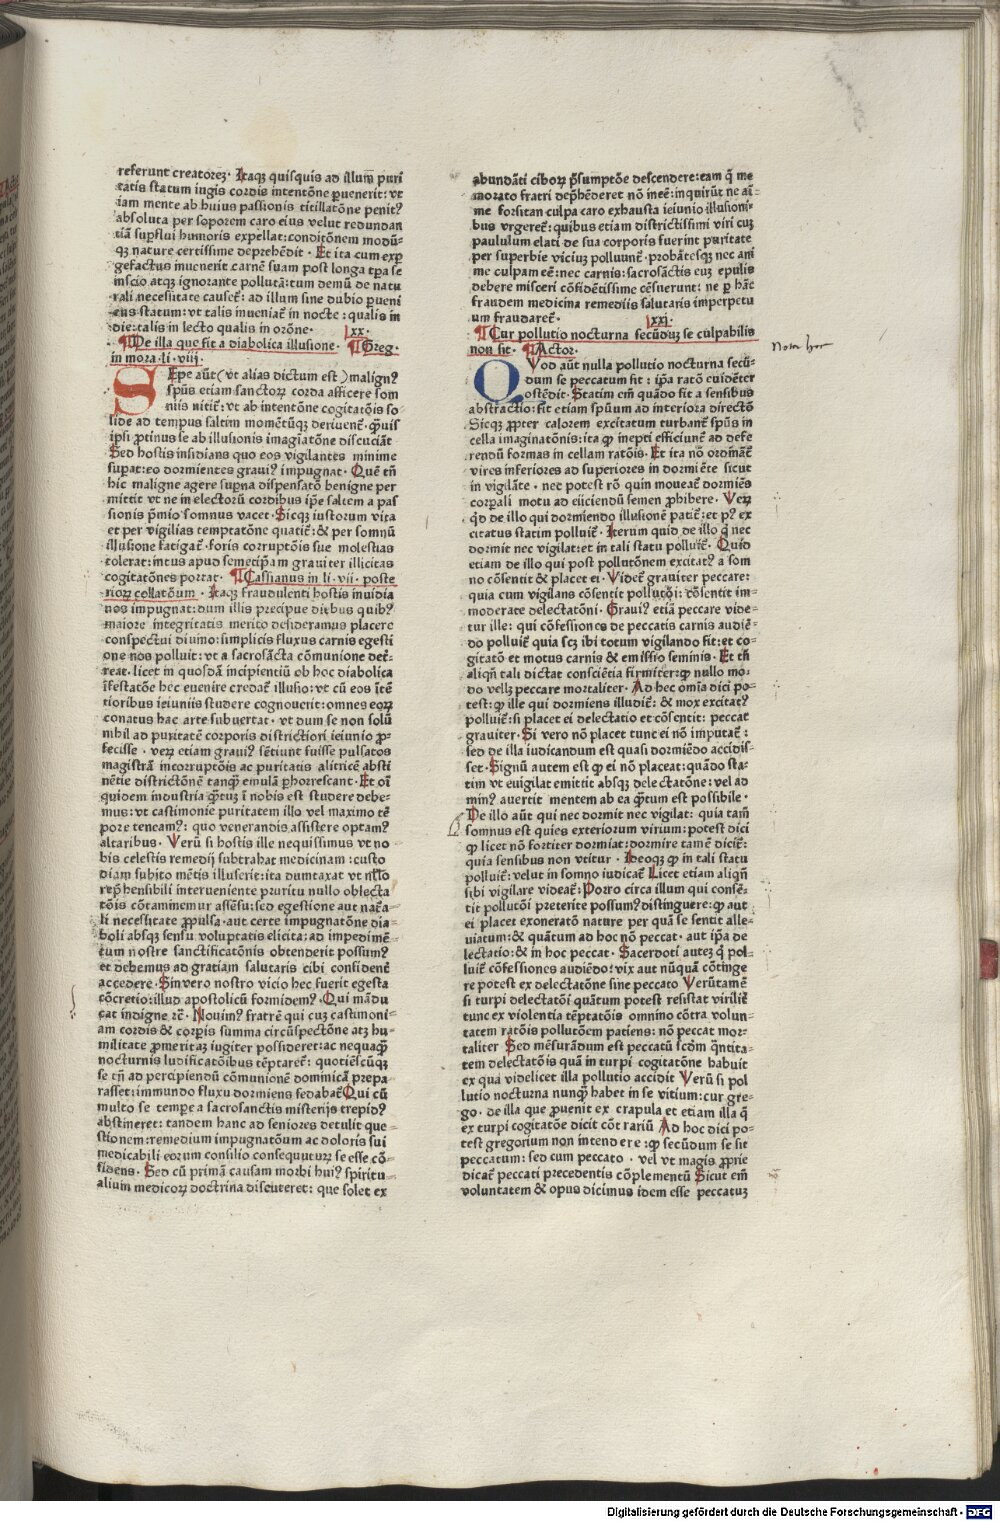 referunt creatorez· Itaqꝫ quisquis ad illum̄ puri
tatis statum iugis cordis intentōne ꝑuenerit: vt
iam mente ab huius passionis titillatōne penitꝰ
absoluta per soporem caro eius velut redundan
tiā suꝑflui humoris expellat: conditōnem modū-
qꝫ nature certissime dep̄hēdit· Et ita cum exꝑ
gefactus inuenerit carnē suam post longa tꝑa se
inscio atqꝫ ignorante pollutā: tum demū de natu
rali necessitate causet̄: ad illum sine dubio ꝑueni
ens statum: vt talis inueniat̄ in nocte: qualis in
die: talis in lecto qualis in orōne· xx·
¶De illa que fit a diabolica illusione· ¶Greg·
in mora·li·viij·
SEpe aūt (vt alias dictum est) malignꝰ
spūs etiam sanctoꝝ corda afficere som
niis nitit̄: vt ab intentōne cogitatōis so
lide ad tempus saltim momētūqꝫ deriuent̄· ꝙuis
ipsi ꝓtinus se ab illusionis imagiatōne discuciāt
Sed hostis insidians quo eos vigilantes minime
suꝑat: eo dormientes grauiꝰ impugnat· Quē tn̄
hic maligne agere suꝑna dispensatō benigne per
mittit vt ne in electorū cordibus ip̄e saltem a pas
sionis p̄mio somnus vacet· Sicqꝫ iustorum vita
et per vigilias temptatōne quatit̄: & per somnū
illusione fatigat̄· foris corruptōis sue molestias
tolerat: intus apud semetip̄am grauiter illicitas
cogitatōnes portat· ¶Cassianus in li·vii·poste
rioꝝ collatōum· Itaqꝫ fraudulenti hostis inuidia
nos impugnat: dum illis precipue diebus quibꝰ
maiore integritatis merito desideramus placere
conspectui diuino: simplicis fluxus carnis egesti
one nos polluit: vt a sacrosācta cōmunione det̄-
reat· licet in quosdā incipientiū ob hoc diabolica
īfestatōe hec euenire credat̄ illusio: vt cū eos ītē
tioribus ieiuniis studere cognouerit: omnes eoꝝ
conatus hac arte subuertat· vt dum se non solū
nihil ad puritatē corporis districtiori ieiunio ꝓ-
fecisse· veꝝ etiam grauiꝰ sētiunt fuisse pulsatos
magistrā incorruptōis ac puritatis alitricē absti
nētie districtōnē tanqꝫ emulā ꝑhorrescant· Et oī
quidem industria ꝙtuꝫ ī nobis est studere debe-
mus: vt castimonie puritatem illo vel maximo tē
pore teneamꝰ: quo venerandis assistere optamꝰ
altaribus· Verū si hostis ille nequissimus vt no-
bis celestis remedij subtrahat medicinam: custo
diam subito mētis illuserit: ita dumtaxat vt nullo
rep̄hensibili interueniente pruritu nullo oblecta
tōis cōtaminemur assēsu: sed egestione aut nat̄a-
li necessitate ꝓpulsa· aut certe impugnatōne dia-
boli absqꝫ sensu voluptatis elicita: ad impedimē-
tum nostre sanctificatōnis obtenderit possumꝰ
et debemus ad gratiam salutaris cibi confident̄
accedere· Sin vero nostro vicio hec fuerit egesta
cōcretio: illud apostolicū formidemꝰ· Qui mādu
cat indigne ꝛc̄· Nouimꝰ fratrē qui cuꝫ castimoni-
am cordis & corꝑis summa circūspectōne atꝫ hu-
militate ꝓmeritaꝫ iugiter possideret: ac nequaꝙ
nocturnis ludificatōibus tēptaret̄: quotiēscūqꝫ
se tn̄ ad percipiendū cōmunionē dominicā prepa-
rasset: immundo fluxu dormiens fedabat̄ Qui cū
multo se tempe a sacrosanctis misterijs trepidꝰ
abstineret: tandem hanc ad seniores detulit que-
stionem: remedium impugnatōum ac doloris sui
medicabili eorum consilio consequuturꝝ se esse cō-
fidens· Sed cū primā causam morbi huiꝰ spiritu-
alium medicoꝝ doctrina discuteret: que solet ex
abundāti ciborꝝ p̄sumptōe descendere: eam q̄ me
morato fratri dep̄hēderet nō ineē: inquirūt ne ai-
me forsitan culpa caro exhausta ieiunio illusioni-
bus vrgeret̄: quibus etiam districtissimi viri cuꝫ
paululum elati de sua corporis fuerint puritate
per superbie viciuꝫ polluunt̄· probātesqꝫ nec ani
me culpam eē: nec carnis: sacrosāctis euꝫ epulis
debere misceri cōfidētissime cēsuerunt: ne ꝑ hāc
fraudem medicina remediis salutaris imperpetu
um fraudaret̄· xxi·
¶Cur pollutio nocturna secūduꝫ se culpabilis
non sit· ¶Actor·
QVod aūt nulla pollutio nocturna secū-
dum se peccatum sit: ip̄a ratō euidēter
ostēdit· Statim em̄ quādo fit a sensibus
abstractio: fit etiam spūum ad interiora directō
Sicqꝫ ꝓpter calorem excitatum turbant̄ spūs in
cella imaginatōnis: ita ꝙ inepti efficiunt̄ ad defe
rendū formas in cellam ratōis· Et ita nō ordinat̄
vires inferiores ad superiores in dormiēte sicut
in vigilāte· nec potest rō quin moueat̄ dormiēs
corꝑali motu ad eiiciendū semen ꝓhibere· Veꝝ
qd̄ de illo qui dormiendo illusionē patit̄: et pꝰ ex
citatus statim polluit̄· Iterum quid de illo q̄ nec
dormit nec vigilat: et in tali statu polluit̄· Quid
etiam de illo qui post pollutōnem excitatꝰ a som
no cōsentit & placet ei· Videt̄ grauiter peccare:
quia cum vigilans cōsentit pollutōi: cōsentit im-
moderate delectatōni· Grauiꝰ etiā peccare vide-
tur ille: qui cōfessiones de peccatis carnis audiē-
do polluit̄ quia scꝫ ibi totum vigilando fit: et co-
gitatō et motus carnis & emissio seminis· Et tn̄
aliqn̄ tali dictat consciētia firmiter: ꝙ nullo mo-
do vellꝫ peccare mortaliter· Ad hec omīa dici po-
test: ꝙ ille qui dormiens illudit̄: & mox excitatꝰ
polluit̄: si placet ei delectatio et cōsentit: peccat
grauiter· Si vero nō placet tunc ei nō imputat̄:
sed de illa iudicandum est quasi dormiēdo accidis-
set· Signū autem est ꝙ ei nō placeat: quādo sta-
tim vt euigilat emittit absqꝫ delectatōne: vel ad
minꝰ auertit mentem ab ea ꝙtum est possibile·
De illo aūt qui nec dormit nec vigilat: quia tam̄
somnus est quies exteriorum virium: potest dici
ꝙ licet nō fortiter dormiat: dormire tamē dicit̄:
quia sensibus non vtitur· Ideoqꝫ ꝙ in tali statu
polluit̄: velut in somno iudicat̄ Licet etiam aliqn̄
sibi vigilare videat̄: Porro circa illum qui consē-
tit pollutōi preterite possumꝰ distinguere: ꝙ aut
ei placet exoneratō nature per quā se sentit alle-
uiatum: & quātum ad hoc nō peccat· aut ip̄a de
lectatio: & in hoc peccat· Sacerdoti auteꝫ q̄ pol-
luit̄ cōfessiones audiēdo: vix aut nūquā cōtinge
re potest ex delectatōne sine peccato Verūtamē
si turpi delectatōi quātum potest resistat virilit̄
tunc ex violentia tēptatōis omnino cōtra volun-
tatem ratōis pollutōem patiens: nō peccat mor-
taliter Sed mēsurādum est peccatū scd̄m q̄ntita-
tem delectatōis quā in turpi cogitatōne habuit
ex qua videlicet illa pollutio accidit Verū si pol
lutio nocturna nunqꝫ habet in se vitium: cur gre-
go· de illa que ꝓuenit ex crapula et etiam illa q̄
ex turpi cogitatōe dicit cōt rariū Ad hoc dici po-
test gregorium non intendere: ꝙ secūdum se sit
peccatum: sed cum peccato· vel vt magis ꝓprie
dicat̄ peccati precedentis cōplementū Sicut em̄
voluntatem & opus dicimus idem esse peccatuꝫ
Nota hec
Digitalisierung gefördert durch die Deutsche Forschungsgemeinschaft - DFG